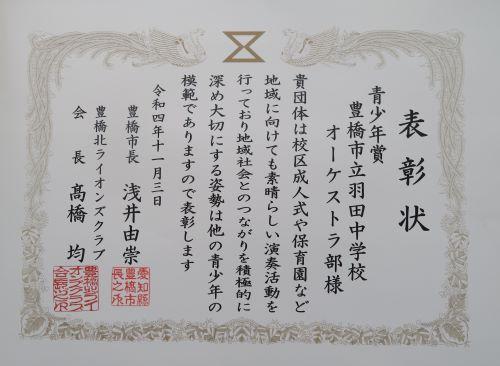 表彰状
青少年賞
豊橋市立羽田中学校
オーケストラ部様
貴団体は校区成人式や保育園など
地域に向けても素晴らしい演奏活動を
行っており地域社会とのつながりを積極的に
深め大切にする姿勢は他の青少年の
模範でありますので表彰します
令和四年十一月三日
豊橋市長 浅井由崇
豊橋北ライオンズクラブ
会長 髙橋均
愛知縣
豊橋市
長之印